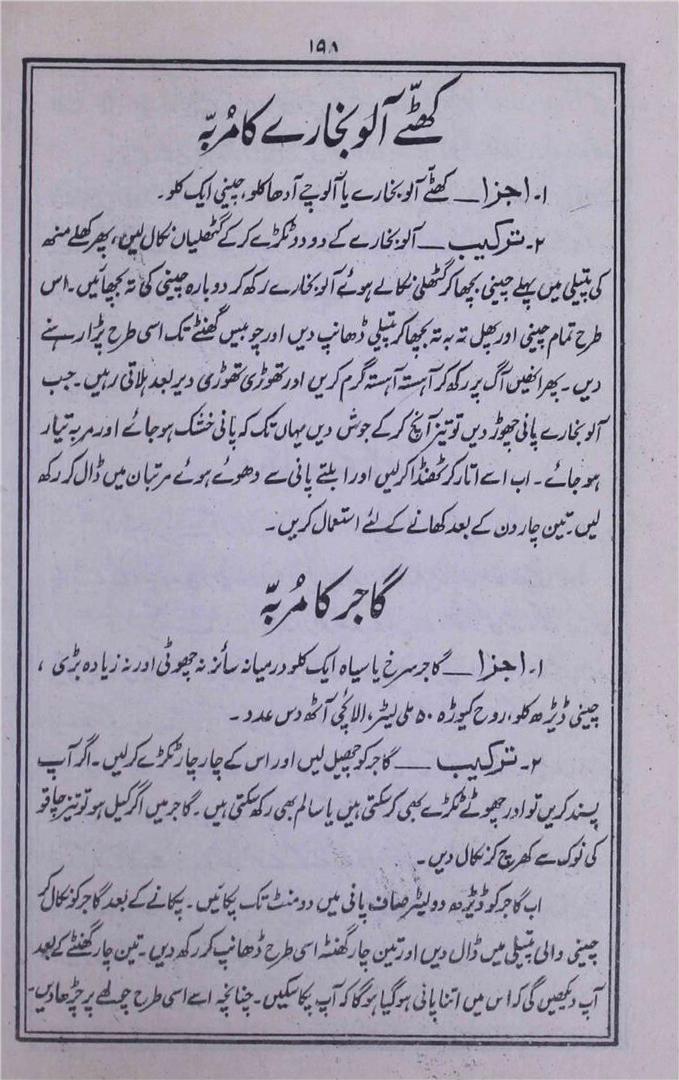 ۱۹۸
کھٹّے آلو بخارے کا مُربّہ
۱۔ اجزا ــــ کھٹّے آلو بخارے یا آلوچے آدھا کلو، چینی ایک کلو۔
۲۔ ترکیب ــــ آلو بخارے کے دو دو ٹکڑے کرکے گٹھلیاں نکال لیں، پھر کھلے منھ
کی پتیلی میں پہلے چینی بچھا کر گٹھلی نکالے ہوئے آلو بخارے رکھ کر دوبارہ چینی کی تہ بچھائیں۔ اس
طرح تمام چینی اور پھل تہ بہ تہ بچھا کر پتیلی ڈھانپ دیں اور چوبیس گھنٹے تک اسی طرح پڑا رہنے
دیں۔ پھر انھیں آگ پر رکھ کر آہستہ آہستہ گرم کریں اور تھوڑی تھوڑی دیر بعد ہلاتی رہیں۔ جب
آلو بخارے پانی چھوڑ دیں تو تیز آنچ کرکے جوش دیں یہاں تک کہ پانی خشک ہو جائے اور مربہ تیار
ہو جائے۔ اب اسے اتار کر ٹھنڈا کرلیں اور ابلتے پانی سے دھوئے ہوئے مرتبان میں ڈال کر رکھ
لیں۔ تین چار دن کے بعد کھانے کے لئے استعمال کریں۔
گاجر کا مُربّہ
۱۔ اجزا ــــ گاجر سرخ یا سیاہ ایک کلو درمیانہ سائز نہ چھوٹی اور نہ زیادہ بڑی ،
چینی ڈیڑھ کلو، روح کیوڑہ ۵۰ ملی لیٹر، الائچی آٹھ دس عدد ۔
۲۔ ترکیب ــــ گاجر کو چھیل لیں اور اس کے چار چار ٹکڑے کرلیں۔ اگر آپ
پسند کریں تو اور چھوٹے ٹکڑے بھی کرسکتی ہیں یا سالم بھی رکھ سکتی ہیں۔ گاجر میں اگر کیل ہو تو تیز چاقو
کی نوک سے کھرچ کر نکال دیں۔
اب گاجر کو ڈیڑھ دو لیٹر صاف پانی میں دو منٹ تک پکائیں۔ پکانے کے بعد گاجر کو نکال کر
چینی والی پتیلی میں ڈال دیں اور تین چار گھنٹہ اسی طرح ڈھانپ کر رکھ دیں۔ تین چار گھنٹے کے بعد
آپ دیکھیں گی کہ اس میں اتنا پانی ہو گیا ہوگا کہ آپ پکا سکیں۔ چنانچہ اسے اسی طرح چولھے پر چڑھا دیں۔